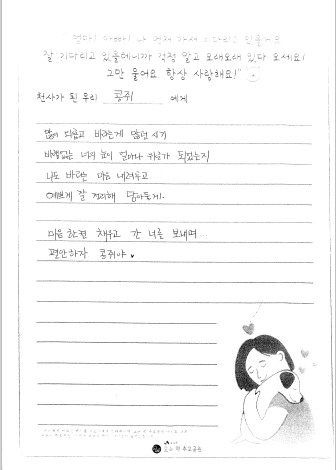 엄마! 아빠! 나 먼저 가서 기다리고 있을게요
잘 기다리고 있을테니까 걱정 말고 오래오래 있다 오세요!
그만 울어요 항상 사랑해요!"
천사가 된 우리 콩쥐 에게
많이 외롭고 바라는게 많던 시기
바램없는 너의 눈이 얼마나 위로가 되었는지
나도 바라는 마음 내려두고
예쁘게 잘 정리해 담아둘게.
마음 한켠 채우고 간 너를 보내며...
편안하자 콩쥐야 ♥